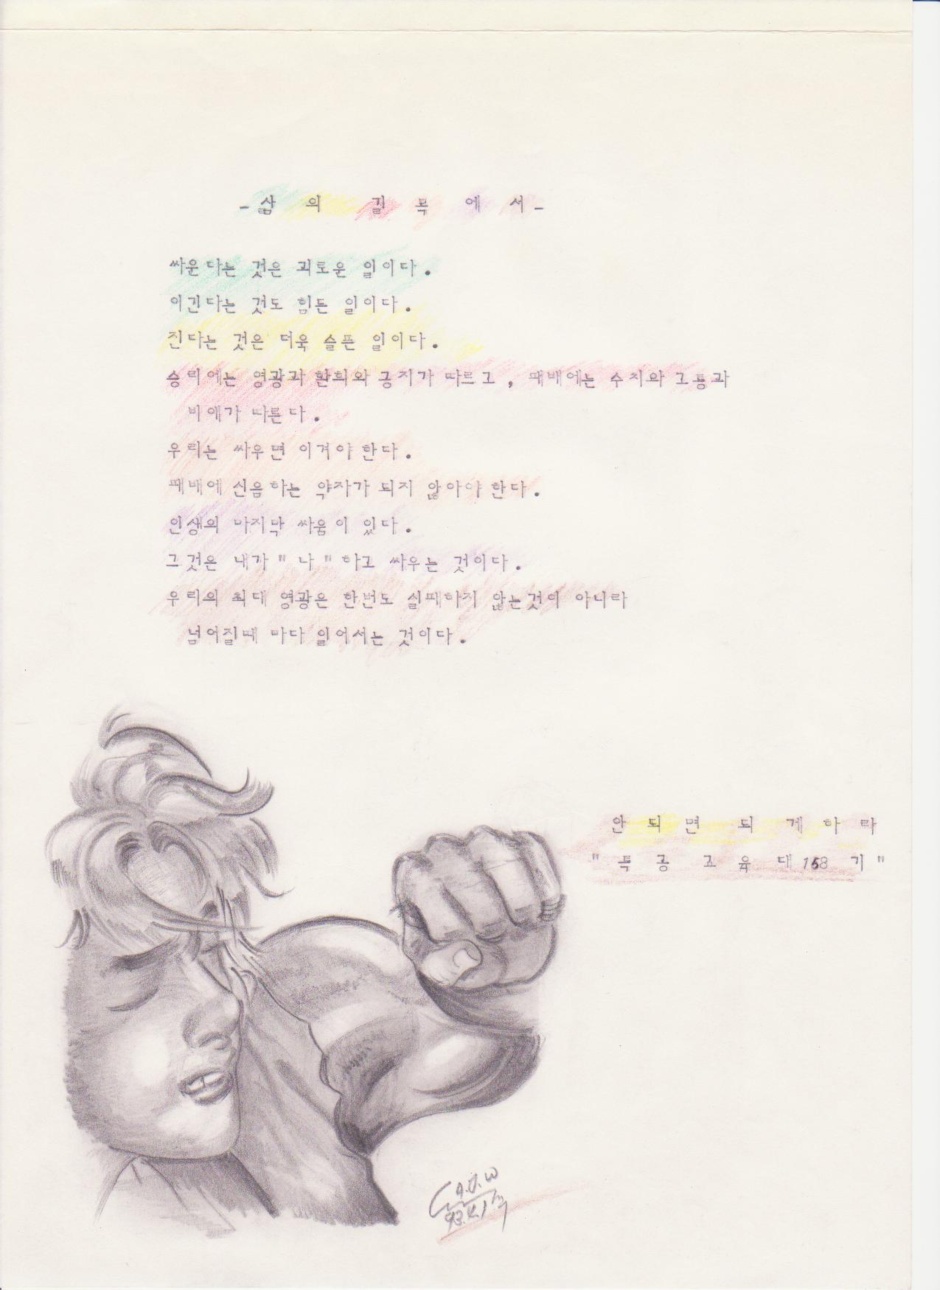 -삶의 길목에서-
싸운다는 것은 괴로운 일이다.
이긴다는 것도 힘든 일이다.
진다는 것은 더욱 슬픈 일이다.
승리에는 영광과 환희와 긍지가 따르고, 패배에는 수치와 고통과
비애가 따른다.
우리는 싸우면 이겨야 한다.
패배에 신음하는 약자가 되지 않아야 한다.
인생의 마지막 싸움이 있다.
그것은 내가 "나"하고 싸우는 것이다.
우리의 최대 영광은 한번도 실패하지 않는것이 아니라
넘어질때 마다 일어서는 것이다.
안되면 되게하라
"특공교육대 158기"